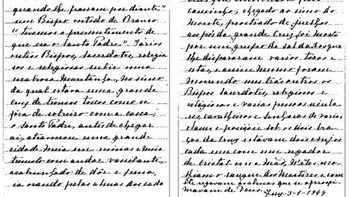 quando lhe passam por diante"
um Bispo vestido de Branco
"tivemos o pressentimento de
que era o Santo Padre". Vários
outros Bispos, Sacerdotes, religio
sos e religiosas subir uma
escabrosa montanha, no cimo
da qual estava uma grande
Cruz de troncos toscos como se
fôra de sobreiro com a casca;
o Santo Padre, antes de chegar
aí, atravessou uma grande
cidade meia em ruínas e meio
trémulo com andar vacilante,
acabrunhado de dôr e pena,
ia orando pelas almas dos cada
caminho; chegado ao cimo do
monte, prostrado de juelhos
aos pés da grande Cruz foi morto
por um grupo de soldados que
lhe dispararam varios tiros e
setas, e assim mesmo foram
morrendo uns trás outros os
Bispos Sacerdotes, religiosos e
religiosas e varias pessoas secula
res, cavalheiros e senhoras de varias
classes e posições. Sob os dois bra
ços da Cruz estavam dois Anjos
cada um com um regador
de cristal em a mão, N'êles reco
lhiam o sangue dos Martires e com
êle regavam as almas que se aproxi
mavam de Deus.
Tuy-3-1-1944